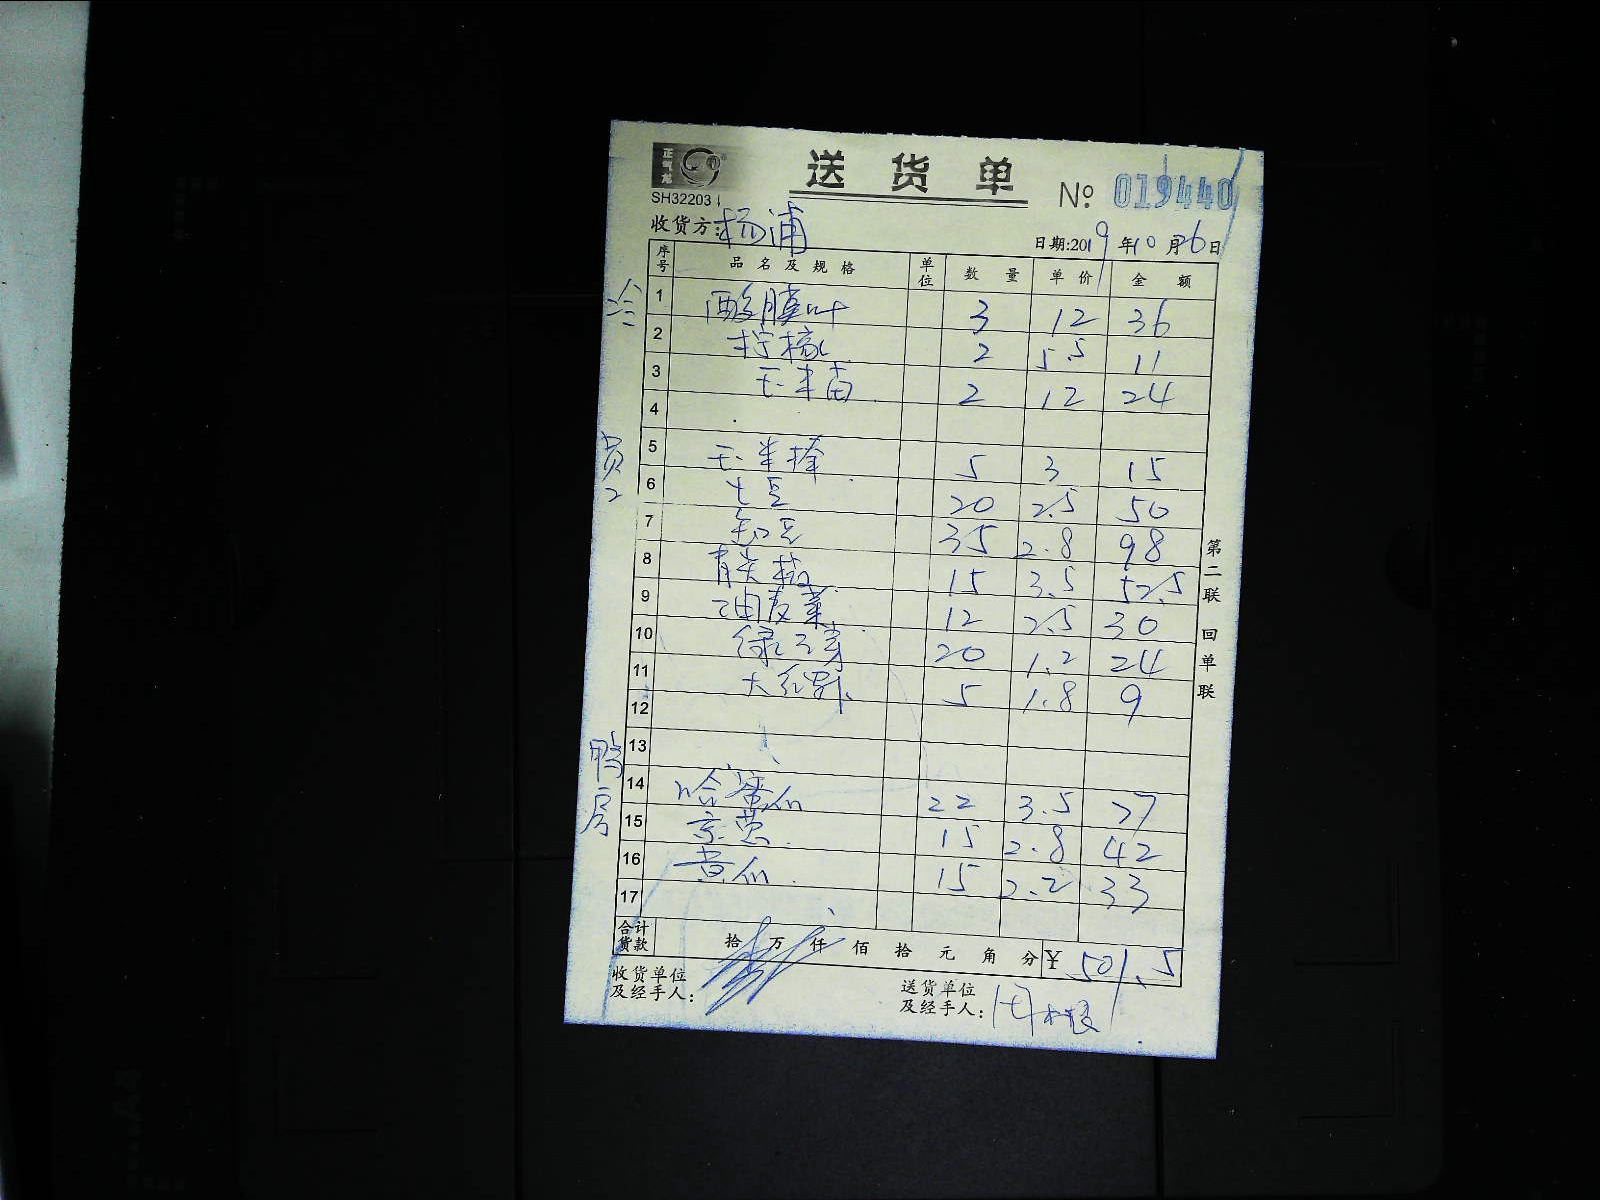 正气龙
送货单
SH32203
№ 019440
收货方:杨浦
日期:2019年10月26日
序号 品名及规格 单位 数量 单价 金额
1 酸膜叶 3 12 36
2 柠檬 2 5.5 11
3 玉米苗 2 12 24
4
5 玉米棒 5 3 15
6 土豆 20 2.5 50
7 20 35 2.8 98
8 青尖椒 15 3.5 52.5
9 油麦菜 12 2.5 30
10 绿豆芽 20 1.2 24
11 大红 5 1.8 9
12
13
14 哈蜜瓜 22 3.5 77
15 京葱 15 2.8 42
16 黄瓜 15 2.2 33
17
鸭房
第二联 回单联
合计货款 拾 万 仟 佰 拾 元 角 分 ¥ 501.5
收货单位及经手人:
送货单位及经手人: